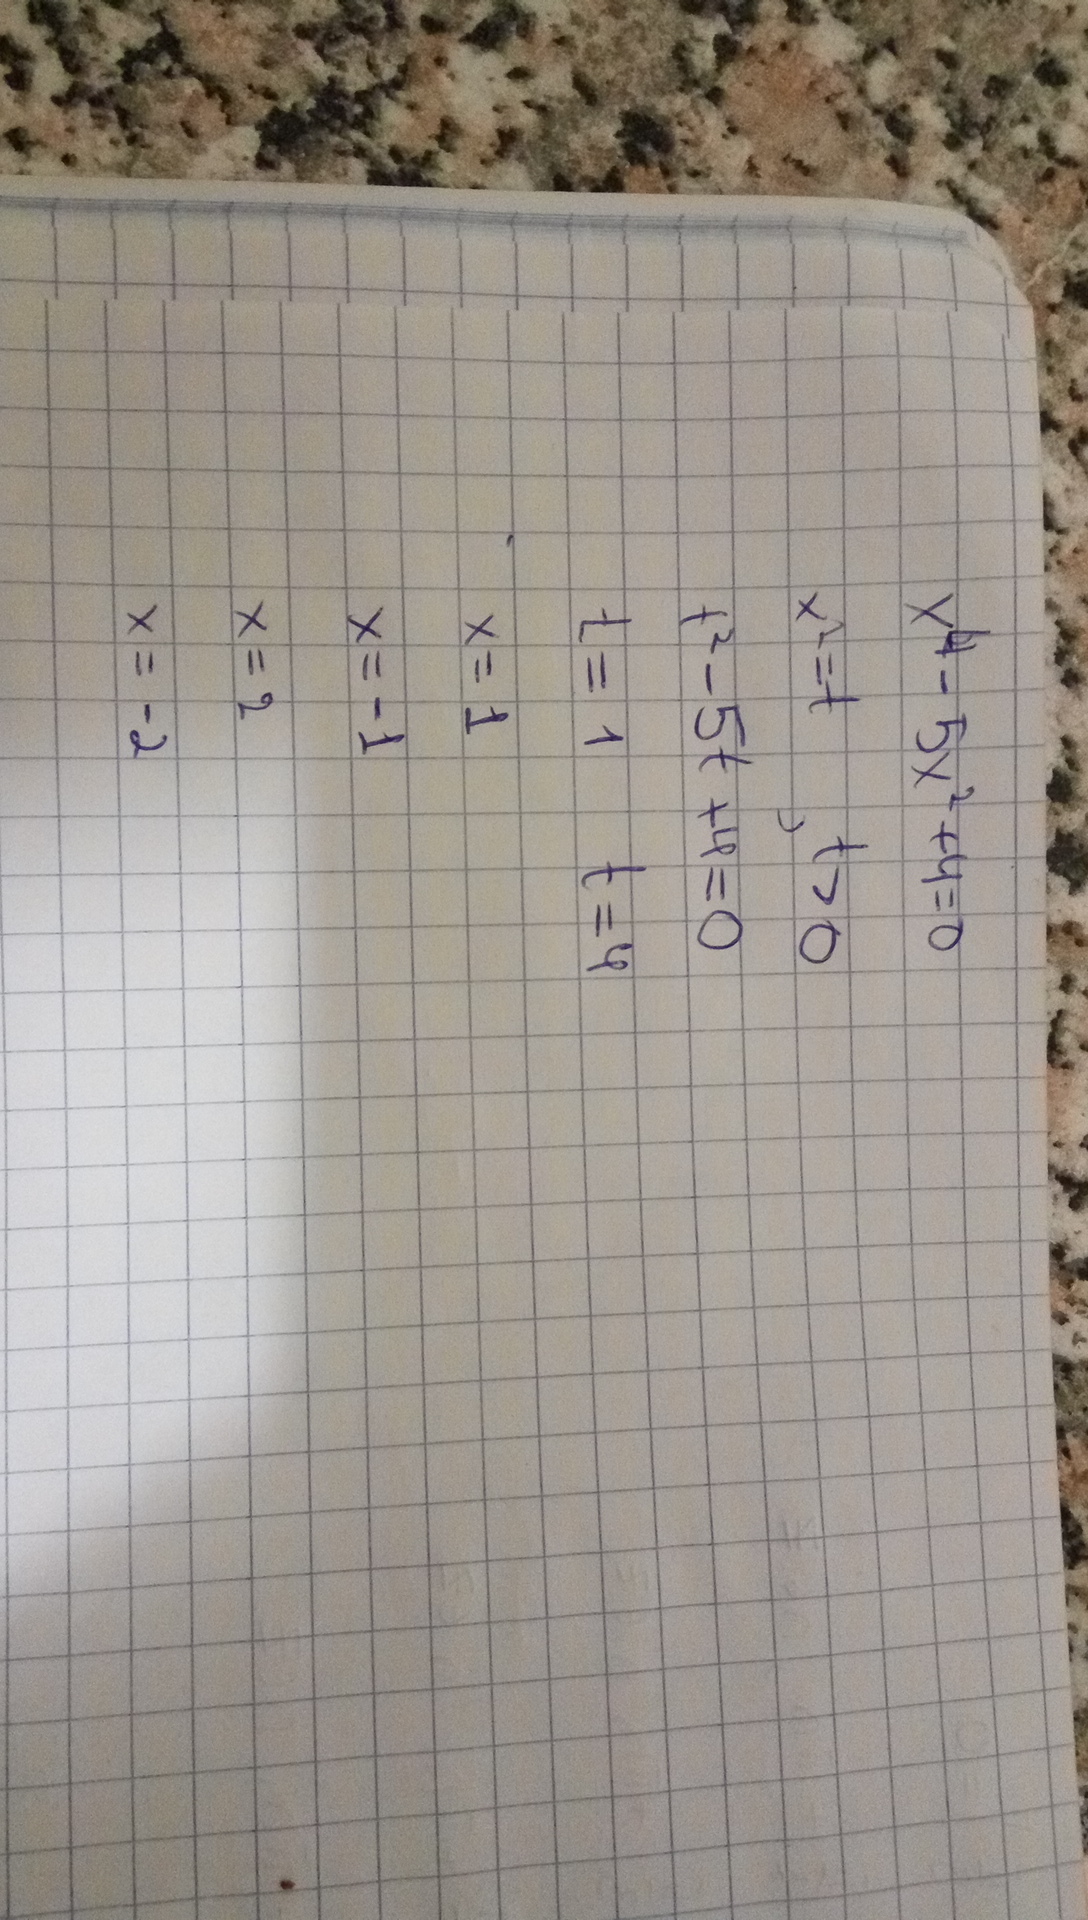 x⁴ - 5x² + 4 = 0
x² = t , t > 0
t² - 5t + 4 = 0
t = 1 t = 4
x = 1
x = -1
x = 2
x = -2